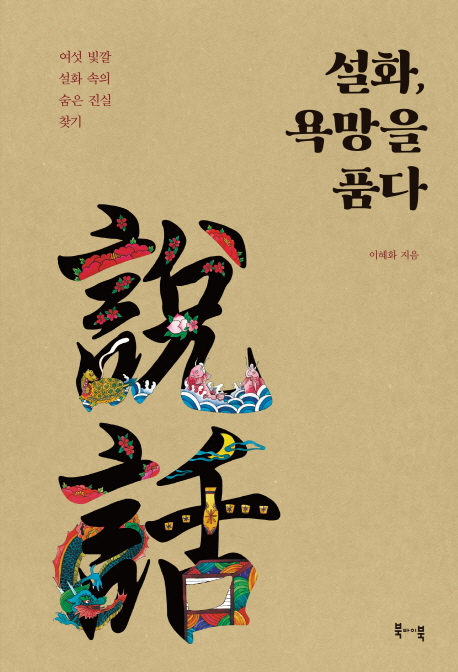 여섯 빛깔
설화 속의
숨은 진실
찾기
설화,
욕망을
품다
이혜화 지음
說
話
북바이북